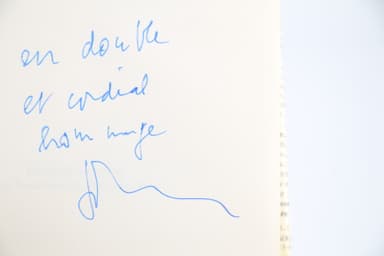 en double
et cordial
hommage